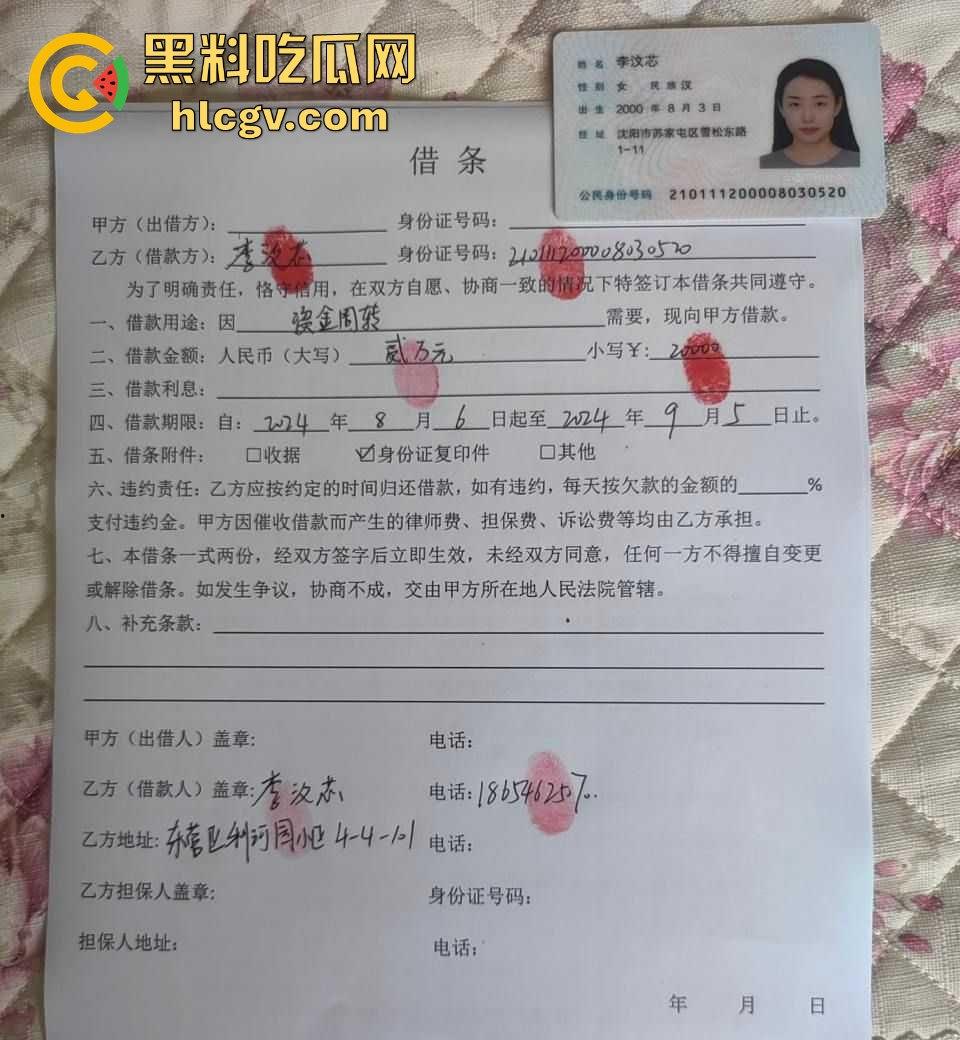 黑料吃瓜网
hlcgv.com
姓名 [略]
性别 女 民族 汉
出生 [略]
住址 [略]
公民身份号码 [略]
借条
甲方（出借方）： 身份证号码：
乙方（借款方）：[略] 身份证号码：[略]
为了明确责任，恪守信用，在双方自愿、协商一致的情况下特签订本借条共同遵守。
一、借款用途：因 资金周转 需要，现向甲方借款。
二、借款金额：人民币（大写） 贰万元 小写￥: 20000
三、借款利息：
四、借款期限：自：2024年8月6日起至2024年9月5日止。
五、借条附件： □收据 ☑身份证复印件 □其他
六、违约责任：乙方应按约定的时间归还借款，如有违约，每天按欠款的金额的 %
支付违约金。甲方因催收借款而产生的律师费、担保费、诉讼费等均由乙方承担。
七、本借条一式两份，经双方签字后立即生效，未经双方同意，任何一方不得擅自变更
或解除借条。如发生争议，协商不成，交由甲方所在地人民法院管辖。
八、补充条款：
甲方（出借人）盖章: 电话：
乙方（借款人）盖章:[略] 电话：[略]
乙方地址:[略] 电话：
乙方担保人盖章: 身份证号码：
担保人地址： 电话：
年 月 日